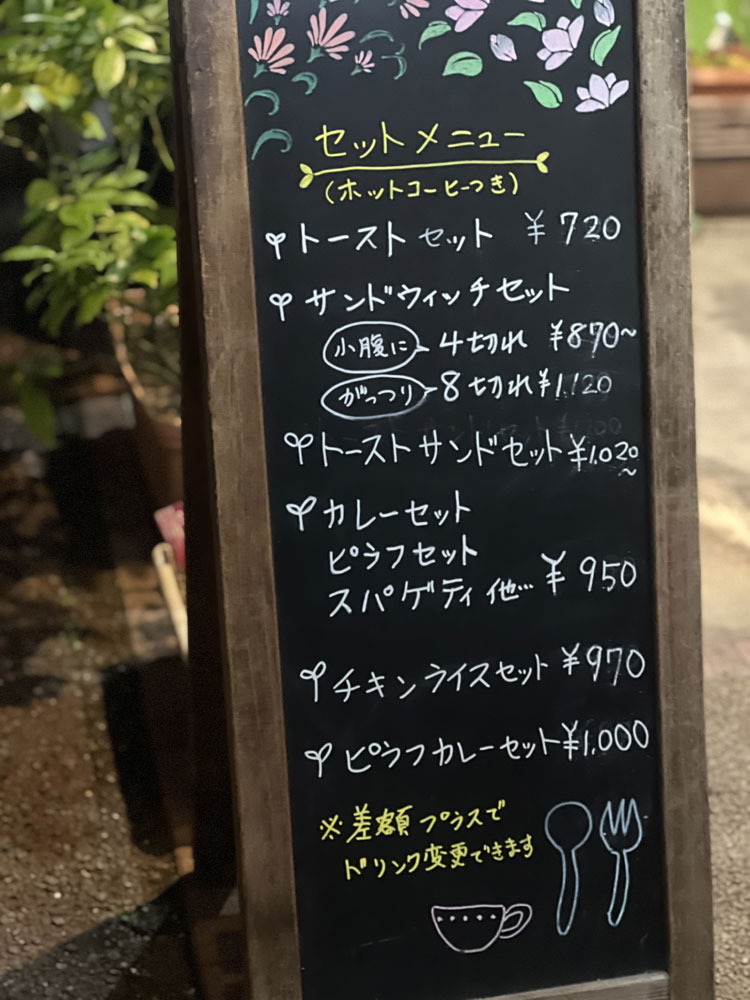 セットメニュー
(ホットコーヒーつき)
トーストセット ¥720
サンドウィッチセット
小腹に 4切れ ¥870~
がっつり 8切れ ¥1.120
トーストサンドセット ¥1.020~
カレーセット
ピラフセット
スパゲティ他… ¥950
チキンライスセット ¥970
ピラフカレーセット ¥1.000
※差額プラスで
ドリンク変更できます